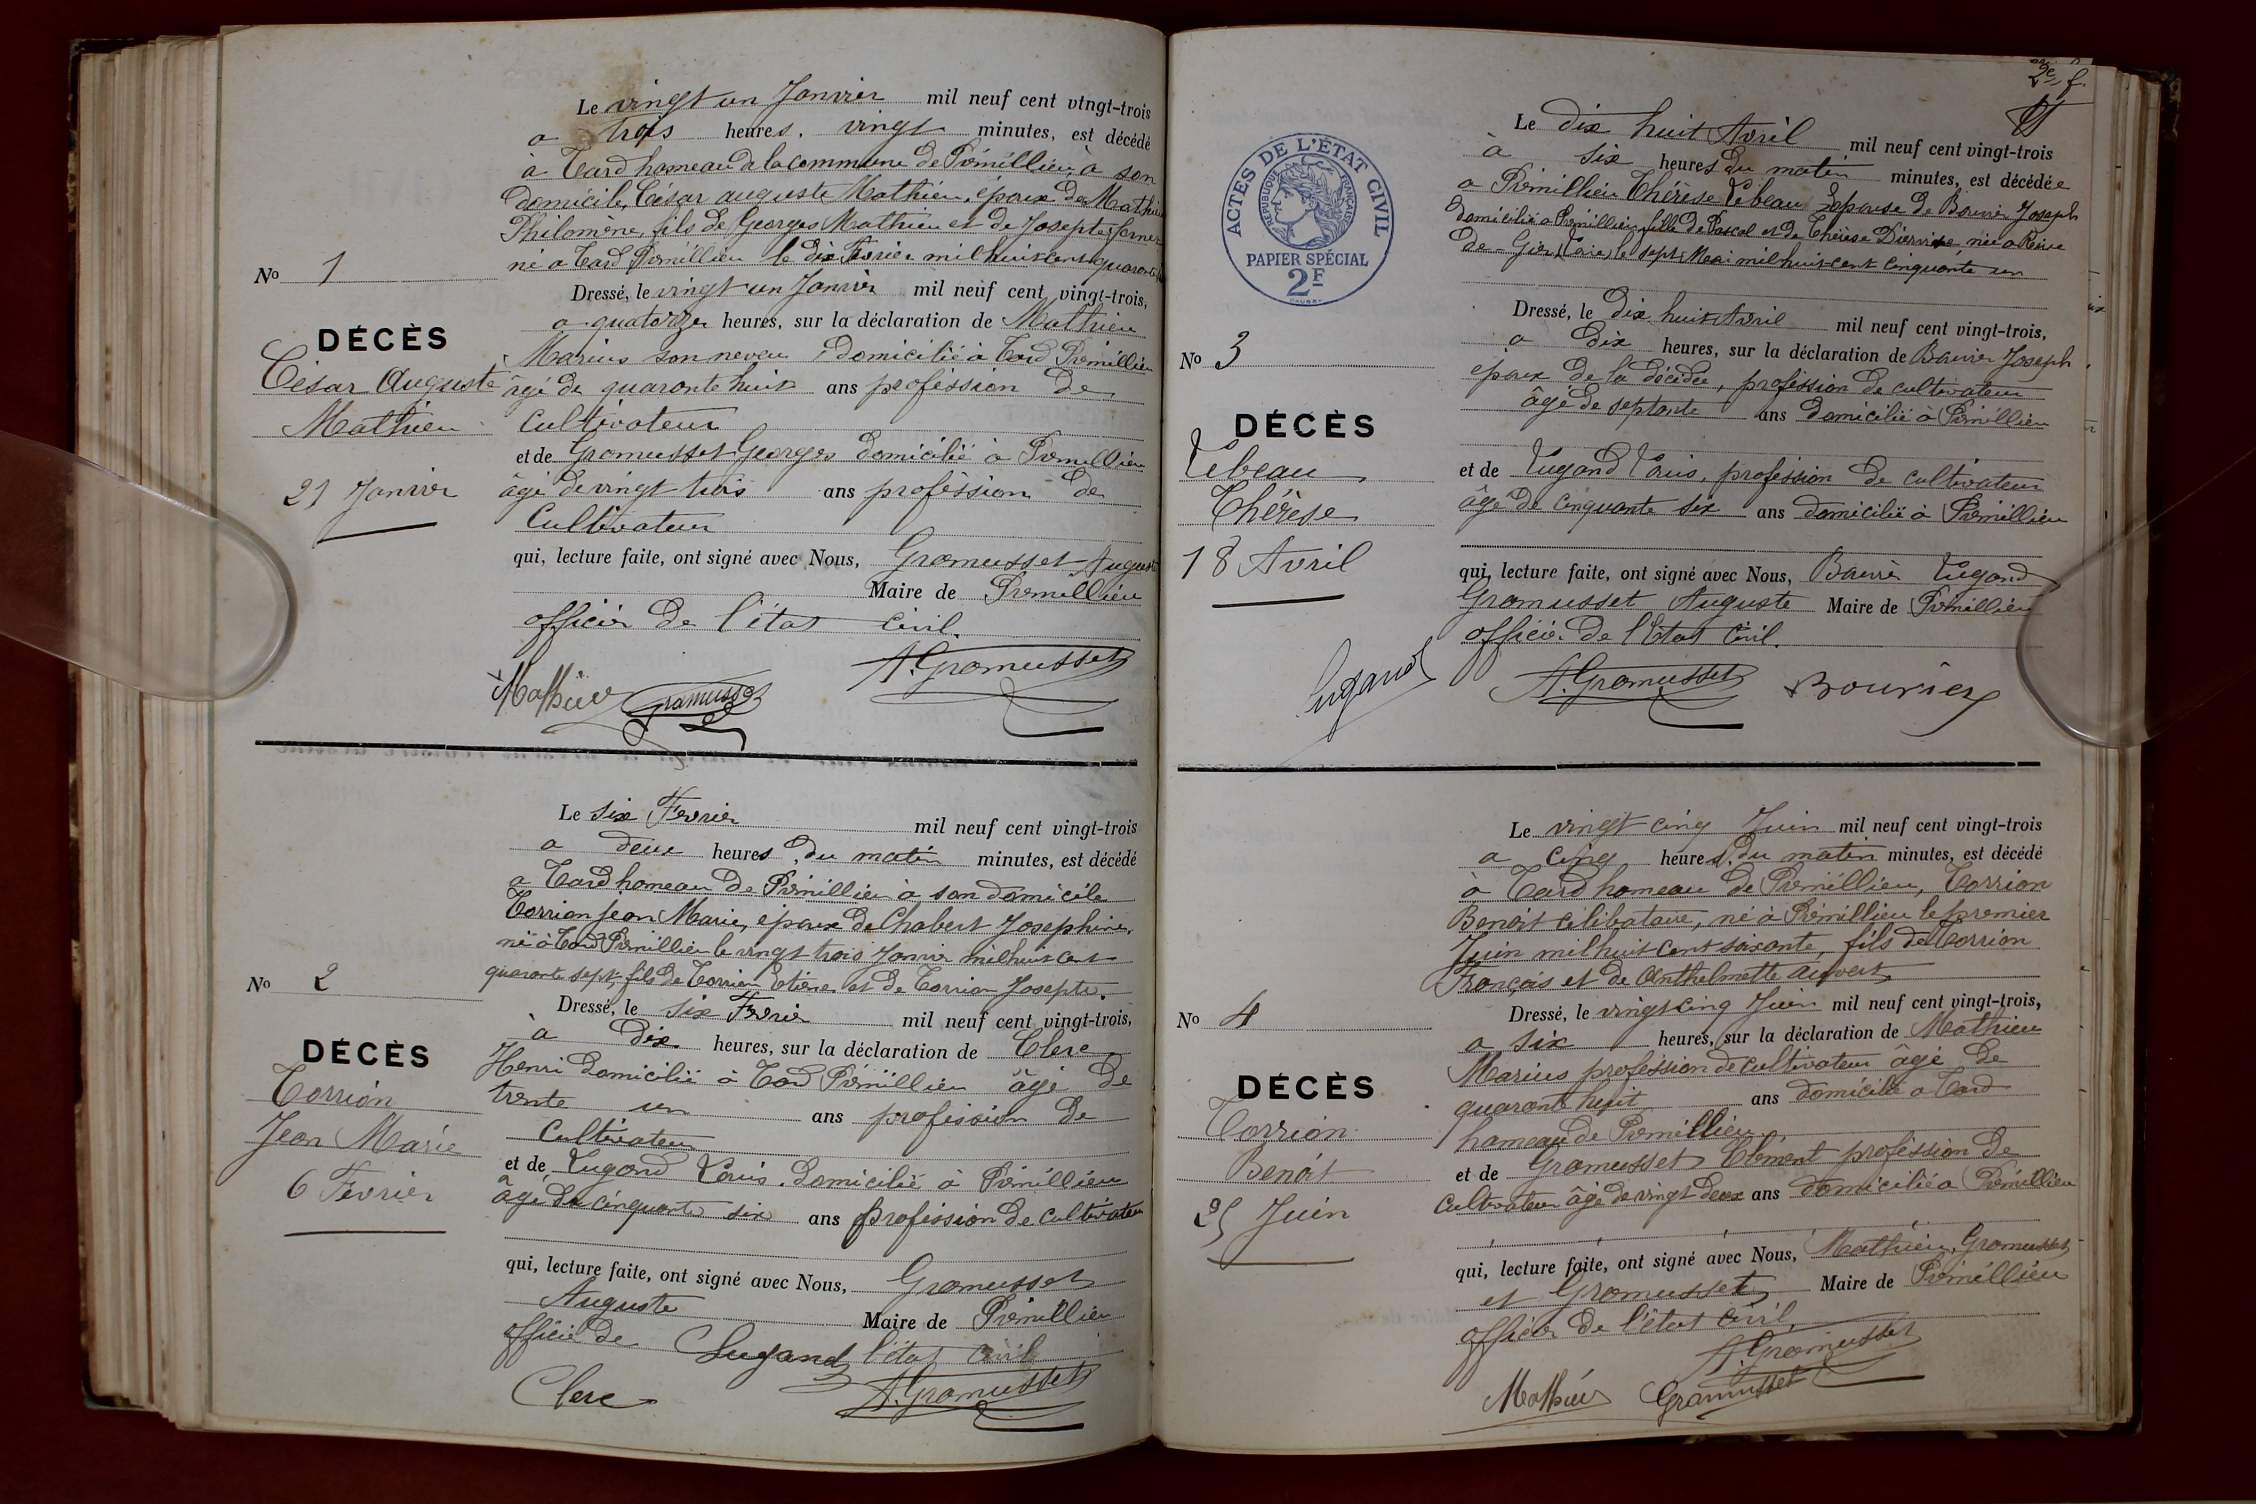 Le vingt un Janvier mil neuf cent vingt-trois
a trois heures, vingt minutes, est décédé
à Tard hameau de la commune de Prémillieu, à son
domicile, César auguste Mathieu, époux de Mathieu
Philomène, fils de Georges Mathieu et de Josepte
né a Tard Prémillieu le dix Fevrier mil huit cent quarante
No 1
Dressé, le vingt un Janvier mil neuf cent vingt-trois,
a quatorze heures, sur la déclaration de Mathieu
DÉCÈS
Marius son neveu, domicilié à Tard Prémillieu
César Auguste
âgé de quarante huit ans profession de
Mathieu
Cultivateur
et de Gromusset Georges domicilié à Prémillieu
21 Janvier
âgé de vingt trois ans profession de
Cultivateur
qui, lecture faite, ont signé avec Nous, Gromusset Auguste
Maire de Prémillieu
officier de l'état civil.
Mathieu Gramusset A. Gromusset
Le six Fevrier mil neuf cent vingt-trois
a deux heures du matin minutes, est décédé
a Tard hameau de Prémillieu à son domicile
Torrion Jean Marie, époux de Chabert Josephine,
né à Tard Prémillieu le vingt trois Janvier mil huit cent
quarante sept, fils de Torrion Etiene et de Torrion Josepte.
No 2
Dressé, le six Fevrier mil neuf cent vingt-trois,
à dix heures, sur la déclaration de Clerc
DÉCÈS
Henri domicilié à Tard Prémillieu âgé de
Torrion
trente un ans profession de
Jean Marie
Cultivateur
et de Lugand Louis, domicilié à Prémillieu
6 Fevrier
âgé de cinquante six ans profession de cultivateur
qui, lecture faite, ont signé avec Nous, Gromusset
Auguste Maire de Prémillieu
officier de l'état civil
Lugand
Clerc A. Gromusset
2e f.
ACTES DE L'ÉTAT CIVIL
REPUBLIQUE FRANÇAISE
PAPIER SPÉCIAL
2F
Le dix huit Avril mil neuf cent vingt-trois
à six heures du matin minutes, est décédée
a Prémillieu Thérèse Lebeau Epouse de Bouvier Joseph
domicilié a Prémillieu, fille de Pascal et de Thérèse née a Rive
de-Gier (Loire) le sept Mai mil huit cent cinquante un
Dressé, le dix huit Avril mil neuf cent vingt-trois,
No 3
a dix heures, sur la déclaration de Bouvier Joseph
époux de la décédée, profession de cultivateur
DÉCÈS
âgé de septante ans domicilié à Prémillieu
Lebeau
et de Lugand Louis, profession de cultivateur
Thérèse
âgé de cinquante six ans domicilié à Prémillieu
18 Avril
qui, lecture faite, ont signé avec Nous, Bouvier Lugand
Gromusset Auguste Maire de Prémillieu
officier de l'Etat Civil.
Lugand A. Gromusset Bouvier
Le vingt cinq Juin mil neuf cent vingt-trois
a cinq heures, du matin minutes, est décédé
à Tard hameau de Prémillieu, Torrion
Benoit célibataire, né à Prémillieu le premier
Juin mil huit cent soixante, fils de Torrion
François et de Anthelmette auvert
Dressé, le vingt cinq Juin mil neuf cent vingt-trois,
No 4
a six heures, sur la déclaration de Mathieu
Marius profession de cultivateur âgé de
DÉCÈS
quarante huit ans domicilié a Tard
Torrion
hameau de Prémillieu
Benoit
et de Gromusset Clément profession de
cultivateur âgé de vingt deux ans domicilié a Prémillieu
25 Juin
qui, lecture faite, ont signé avec Nous, Mathieu, Gromusset
et Gromusset Maire de Prémillieu
officier de l'état civil.
A. Gromusset
Mathieu Gramusset